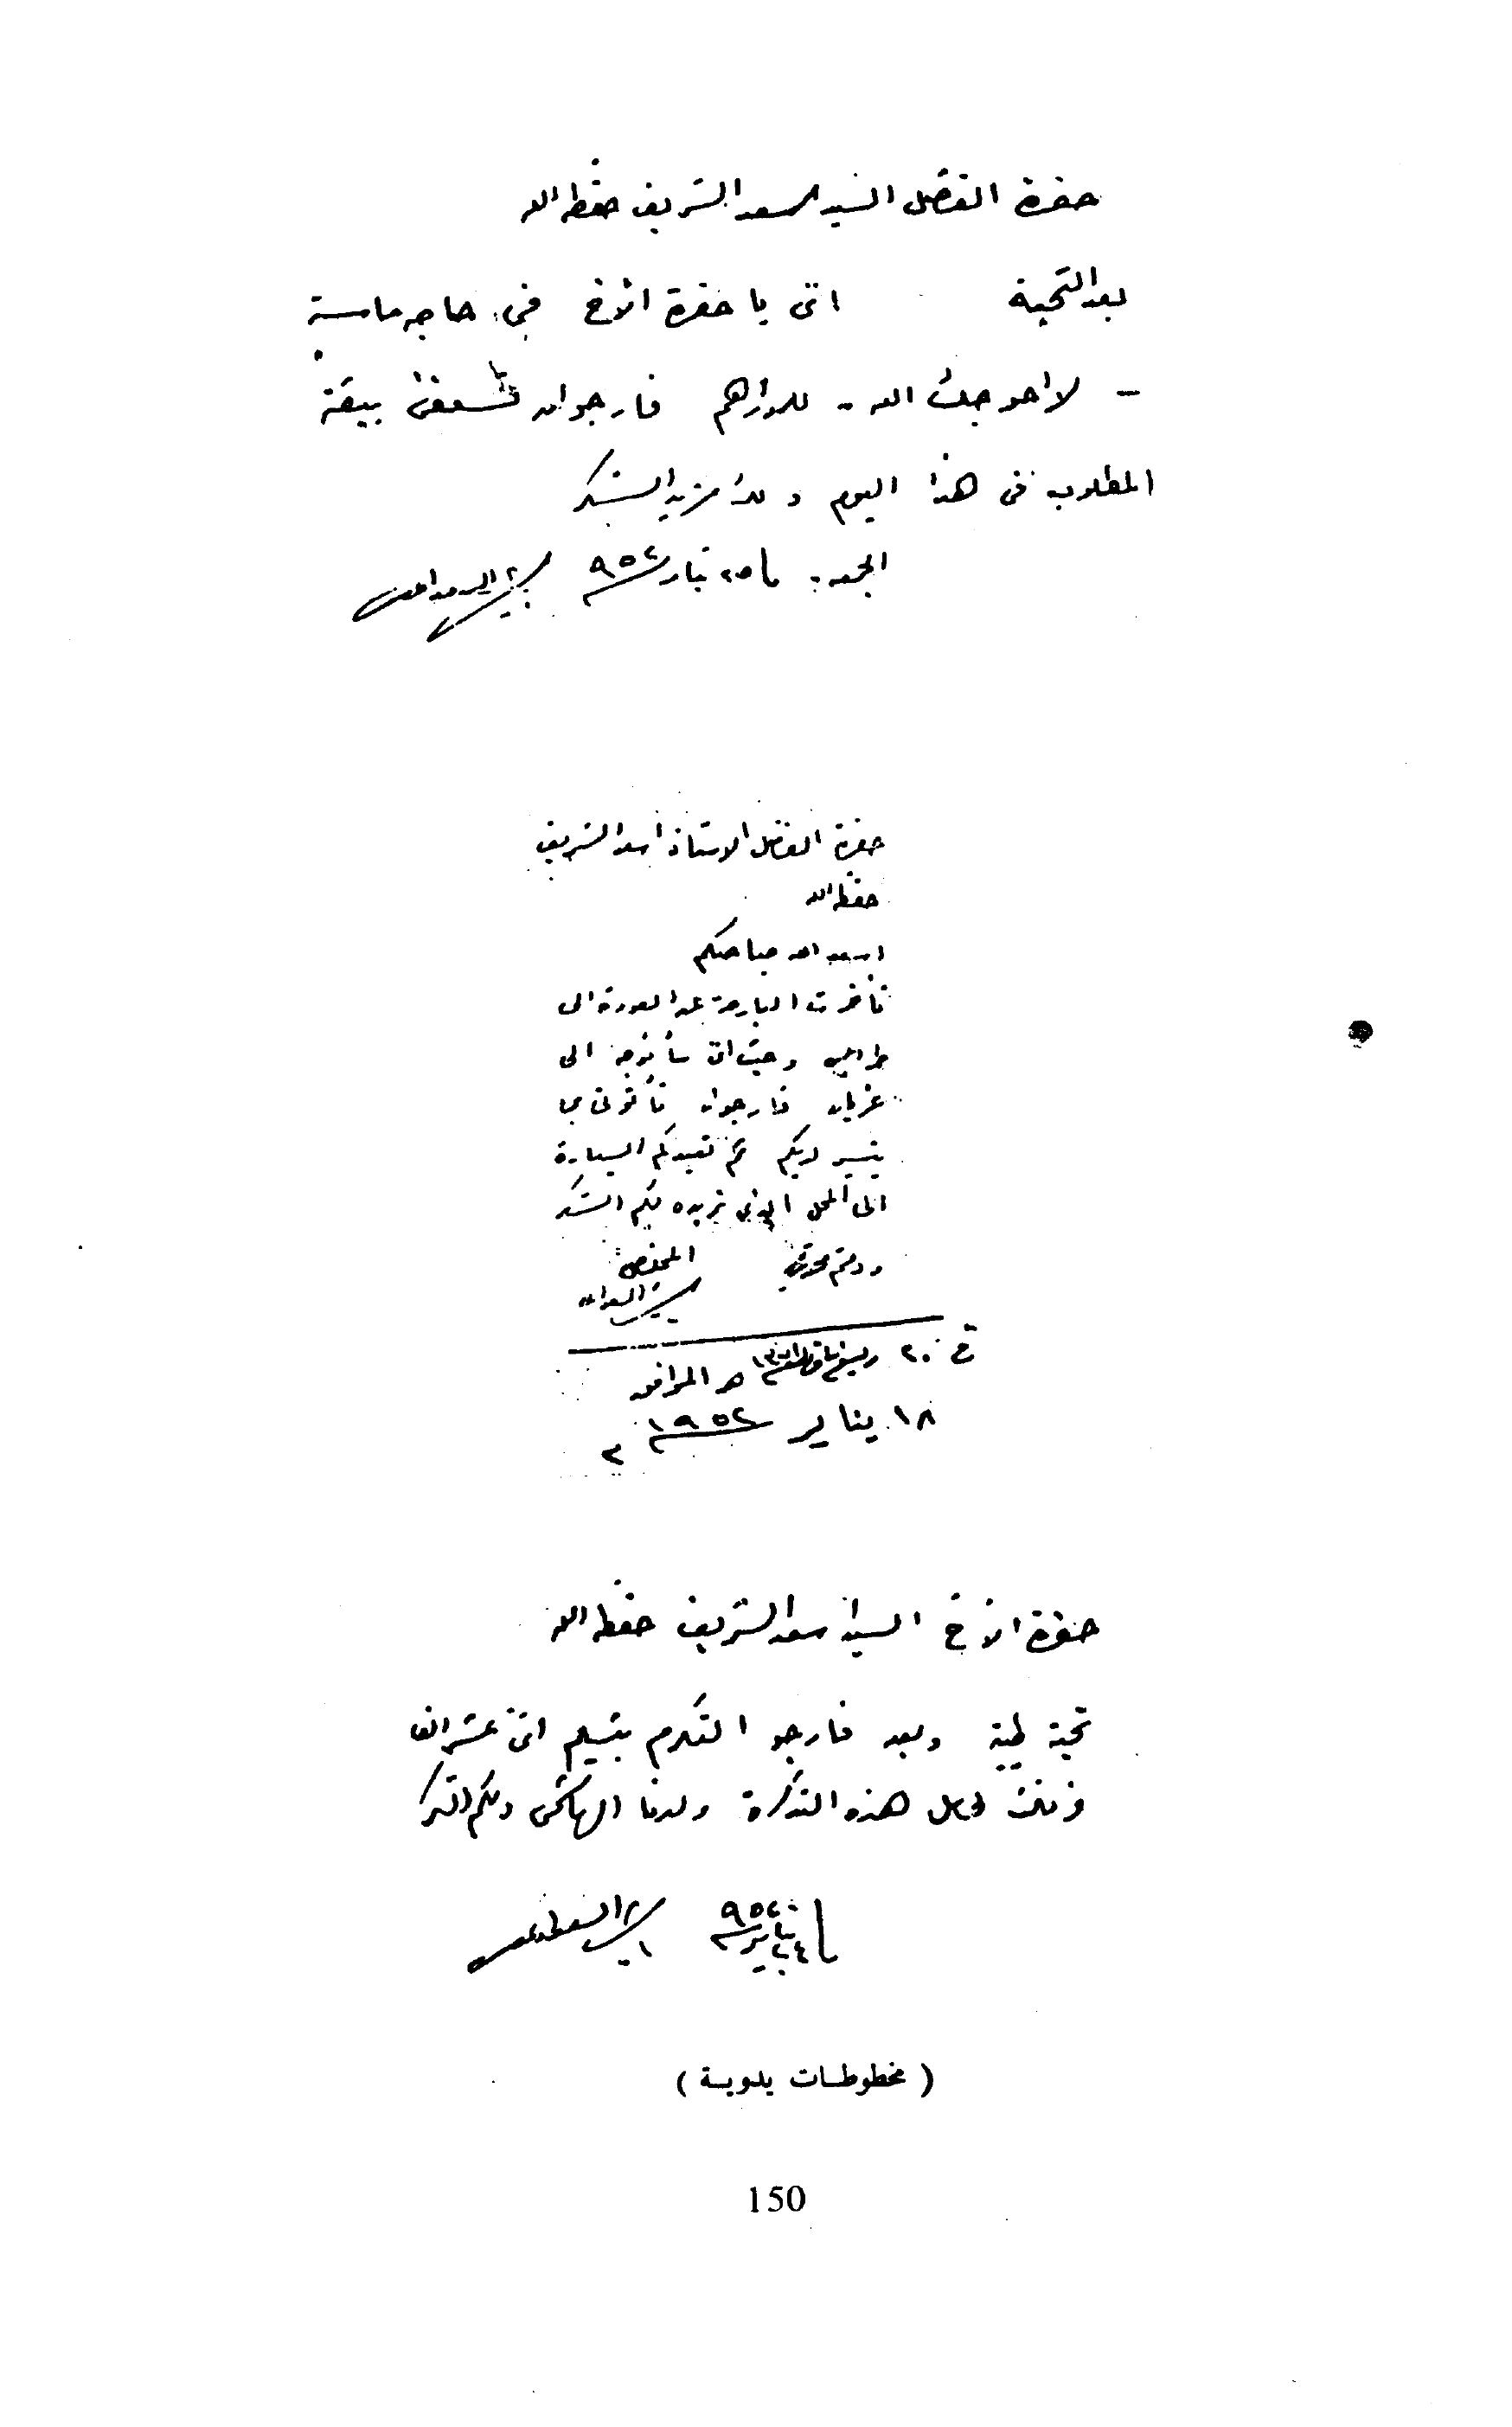 حضرة الفضل السيد اسعد الشريف حفظه الله
بعد التحية انى يا حضرة الأخ فى حاجه ماسة
- لا احوجك الله - للدراهم فارجو ان تسعفنى ببقية
المطلوب فى هذا اليوم ولك مزيد الشكر
الجمعة ٢٥ يناير ٩٥٢
حضرة الفاضل الاستاذ اسعد الشريف
حفظه الله
اسعد الله صباحكم
تأخرت البارحة عن العودة الى
طرابلس وحيث انى سأتوجه الى
غريان فارجو ان تأتونى بما
يتيسر لديكم ثم تعيدكم السيارة
الى المحل الذى تريده ولكم الشكر
ودمتم المخلص
فى ٢٠ ربيع ثانى هـ الموافق
١٨ يناير ١٩٥٢ م
حضرة الأخ السيد اسعد الشريف حفظه الله
تحية طيبة وبعد فارجو التكرم بتسليم اثنى عشر الف
فرنك لحامل هذه التذكرة ولدنا الهاشمى ولكم الشكر
٢٤ يناير ٩٥٢
( مخطوطات يدوية )
150